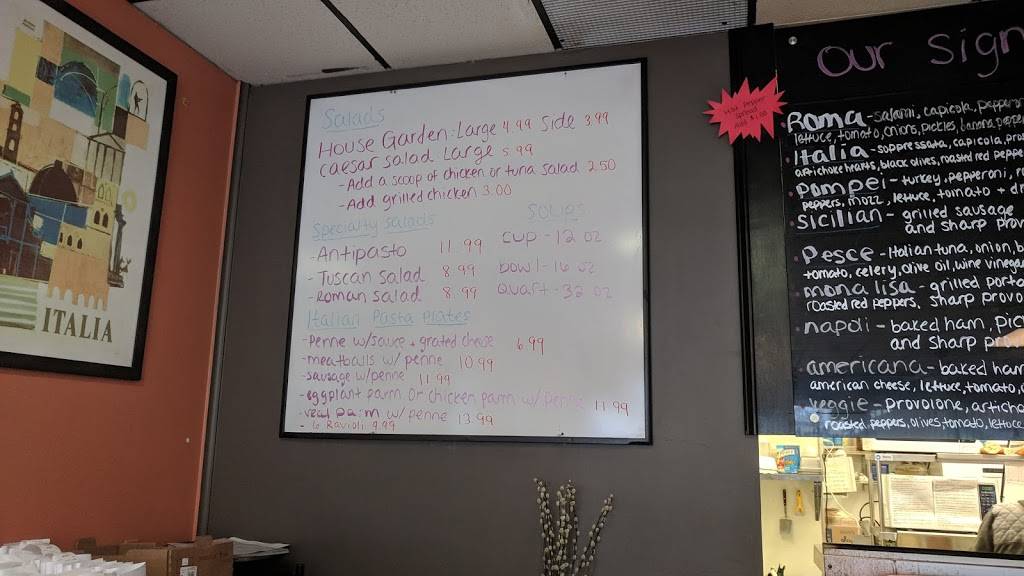 ITALIA
Salads
House Garden: Large 4.99 Side 3.99
Caesar salad Large 5.99
- Add a scoop of chicken or tuna salad 2.50
- Add grilled chicken 3.00
Specialty salads
- Antipasto 11.99
- Tuscan Salad 8.99
- Roman Salad 8.99
Soups
cup - 12 oz
bowl - 16 oz
Quart - 32 oz
Italian Pasta Plates
- Penne w/sauce + grated cheese 6.99
- meatballs w/ penne 10.99
- sausage w/penne 11.99
- eggplant parm or chicken parm w/ penne 11.99
- veal parm w/ penne 13.99
- 6 Ravioli 9.99
Our Sign
Roma - salami, capicola, pepperoni
lettuce, tomato, onions, pickles, banana
Italia - soppressata, capicola, pro
artichoke hearts, black olives, roasted red peppe
Pompei - turkey, pepperoni,
peppers, mozz, lettuce, tomato +
Sicilian - grilled sausage
and sharp prov
Pesce - Italian tuna, onion, b
tomato, celery, olive oil, wine vinega
mona lisa - grilled porto
roasted red peppers, sharp provo
napoli - baked ham,
and sharp
americana - baked ham
american cheese, lettuce, tomato,
veggie - provolone, articho
roasted peppers, olives, tomato, lettuce